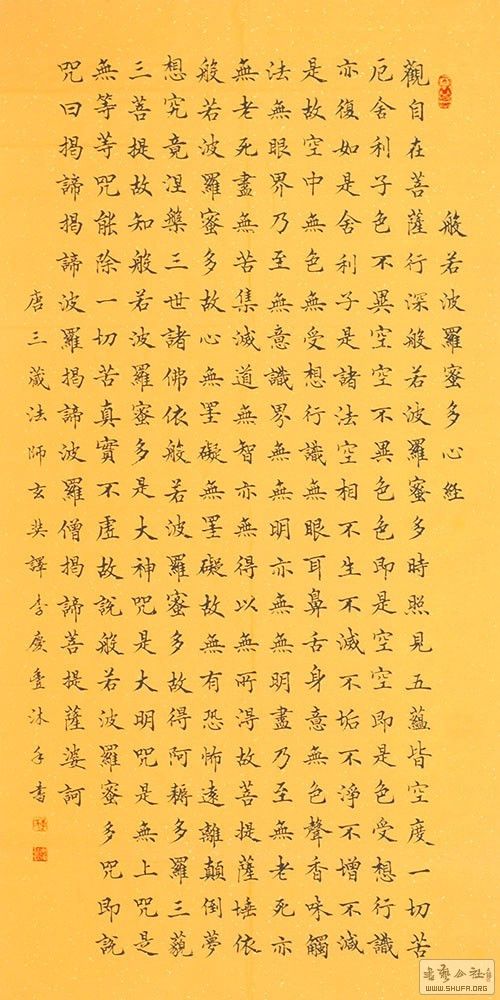 般若波羅蜜多心経
觀自在菩薩行深般若波羅蜜多時照見五蘊皆空度一切苦
厄舍利子色不異空空不異色色即是空空即是色受想行識
亦復如是舍利子是諸法空相不生不滅不垢不淨不增不減
是故空中無色無受想行識無眼耳鼻舌身意無色聲香味觸
法無眼界乃至無意識界無無明亦無無明盡乃至無老死亦
無老死盡無苦集滅道無智亦無得以無所得故菩提薩埵依
般若波羅蜜多故心無罣礙無罣礙故無有恐怖遠離顛倒夢
想究竟涅槃三世諸佛依般若波羅蜜多故得阿耨多羅三藐
三菩提故知般若波羅蜜多是大神咒是大明咒是無上咒是
無等等咒能除一切苦真實不虛故說般若波羅蜜多咒即說
咒曰揭諦揭諦波羅揭諦波羅僧揭諦菩提薩婆訶
唐三藏法師玄奘譯李慶豐沐手書
WWW.SHUFA.ORG